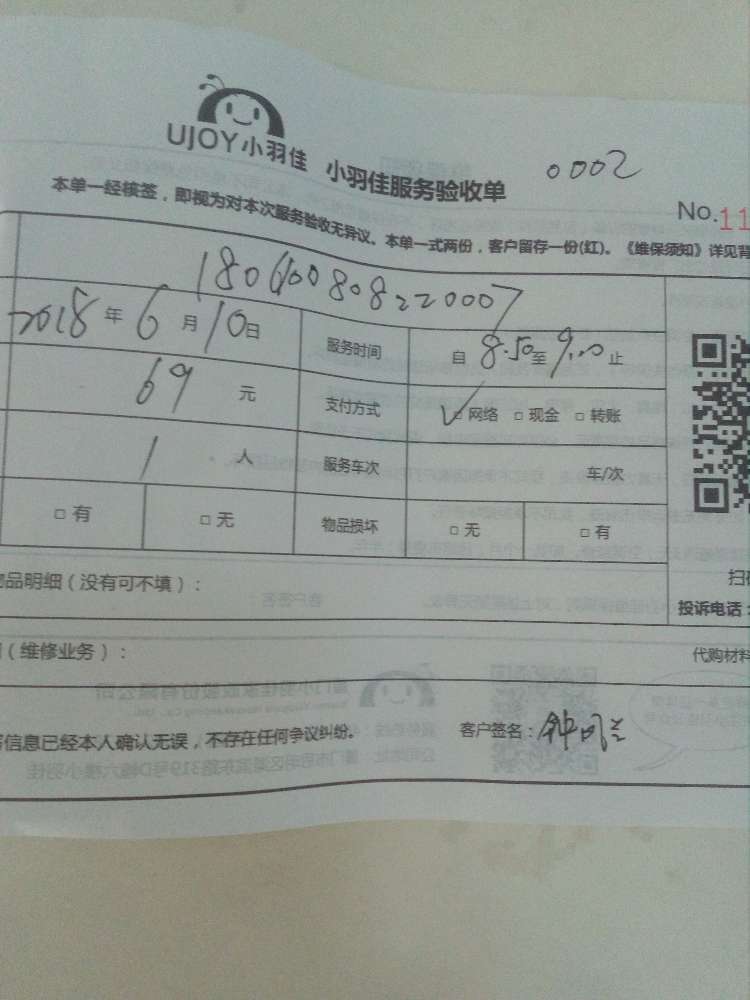 UJOY小羽佳 小羽佳服务验收单 0002
No.11
本单一经核签，即视为对本次服务验收无异议。本单一式两份，客户留存一份(红)。《维保须知》详见背
1806100808220007
2018年6月10日 服务时间 自8:50至9:00止
69元 支付方式 ✓□网络 □现金 □转账
1人 服务车次 车/次
□有 □无 物品损坏 □无 □有
物品明细（没有可不填）： 扫
投诉电话：
（维修业务）： 代购材料
信息已经本人确认无误，不存在任何争议纠纷。 客户签名：钟